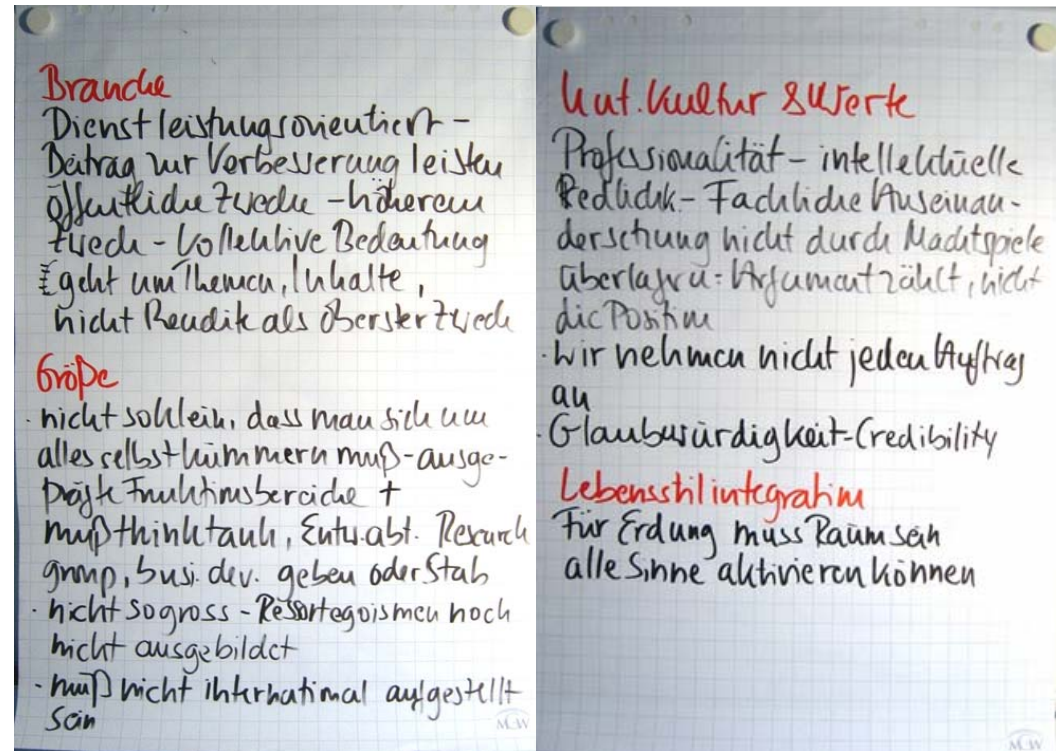 Branche
Dienstleistungsorientiert -
Beitrag zur Verbesserung leisten
öffentliche Zwecke - höherem
Zweck - kollektive Bedeutung
Es geht um Themen, Inhalte,
nicht Rendite als oberster Zweck
Größe
· nicht so klein, dass man sich um
alles selbst kümmern muß - ausge-
prägte Funktionsbereiche +
muß thinktank, Entw.abt. Research
group, busi. dev. geben oder Stab
· nicht so gross - Ressortegoismen noch
nicht ausgebildet
· muß nicht international aufgestellt
sein
MCW
Kultur & Werte
Professionalität - intellektuelle
Redlichk - Fachliche Auseinan-
dersetzung nicht durch Machtspiele
überlagern: Argument zählt, nicht
die Position
· Wir nehmen nicht jeden Auftrag
an
· Glaubwürdigkeit - Credibility
Lebensstilintegration
Für Erdung muss Raum sein
alle Sinne aktivieren können
MCW